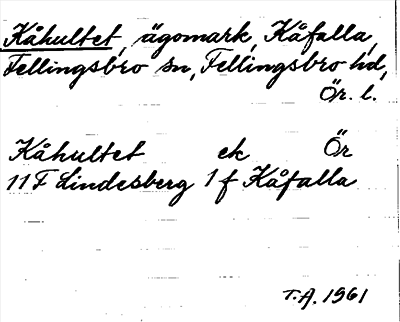 Kåhultet, ägomark, Kåfalla,
Fellingsbro sn, Fellingsbro hd,
Ör. l.
Kåhultet ek Ör
11 F Lindesberg 1 f Kåfalla
T.A. 1961